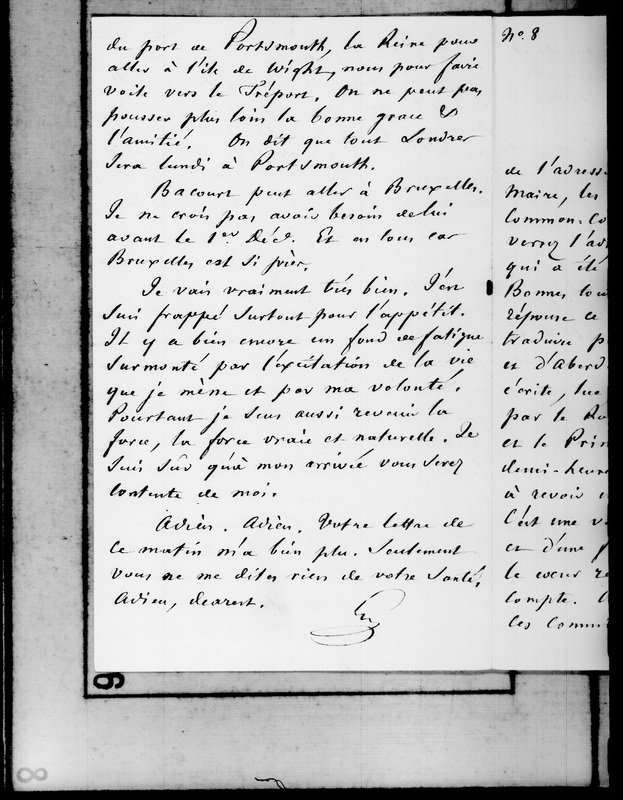 du port de Portsmouth, la Reine pour
aller à l'ile de Wight, nous pour faire
voile vers le Tréport. On ne peut pas
pousser plus loin la bonne grace &
l'amitié. On dit que tout Londres
sera lundi à Portsmouth.
Bacourt peut aller à Bruxelles.
Je ne crois pas avoir besoin de lui
avant le 1er Déc. Et en tous cas
Bruxelles est si près.
Je vais vraiment très bien. J'en
suis frappé surtout pour l'appétit.
Il y a bien encore un fond de fatigue
surmonté par l'excitation de la vie
que je mène et par ma volonté.
Pourtant je sens aussi revenir la
force, la force vraie et naturelle. Je
suis sûr qu'à mon arrivée vous serez
contente de moi.
Adieu. Adieu. Votre lettre de
ce matin m'a bien plu. Seulement
vous ne me dites rien de votre santé.
Adieu, dearest.
No. 8
de l'adress
Maire, les
Common-Co
versez l'ad
qui a été
Bonnes
réponse ce
traduire p
et d'abord
écrite, lue
par le
et le Prin
demi-heure
à revoir
C'est une v
et d'une
le cœur re
compte.
Ces Commi
9
8